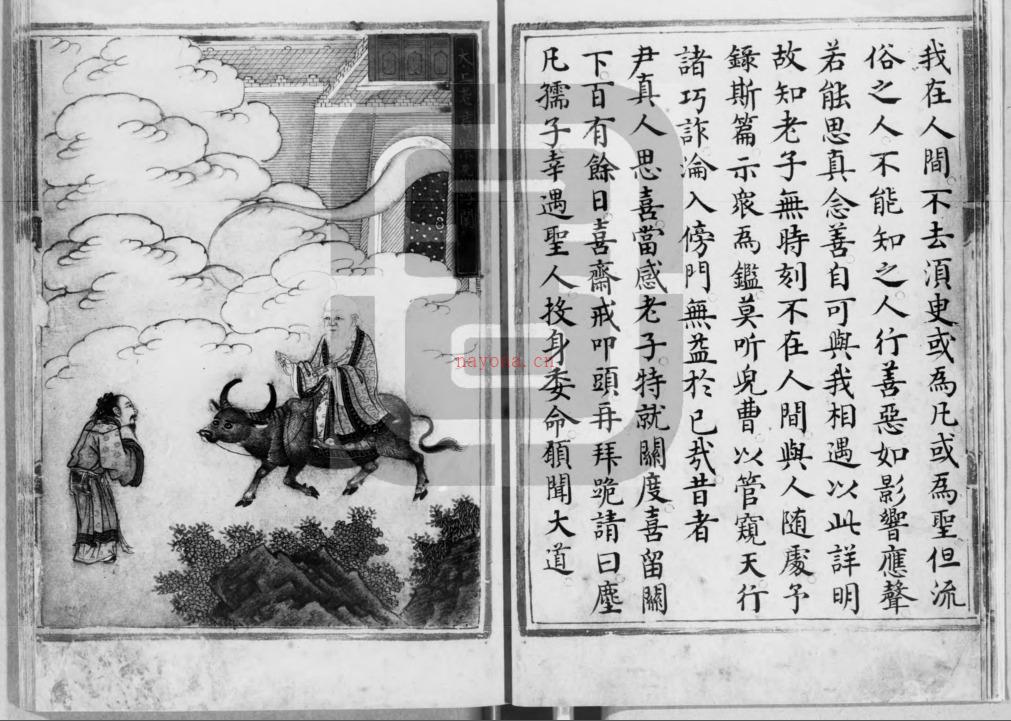 我在人間不去湏臾或為凡或為聖但流
俗之人不能知之人行善惡如影響應聲
若能思真念善自可與我相遇以此詳明
故知老子無時刻不在人間與人随處予
錄斯篇示衆為鑑莫听兒曹以管窺天行
諸巧詐淪入傍門無益於已㦲昔者
尹真人思喜當感老子特就關度喜留關
下百有餘日喜齋戒叩頭再拜跪請曰塵
凡孺子幸遇聖人投身委命願聞大道
nayona.cn